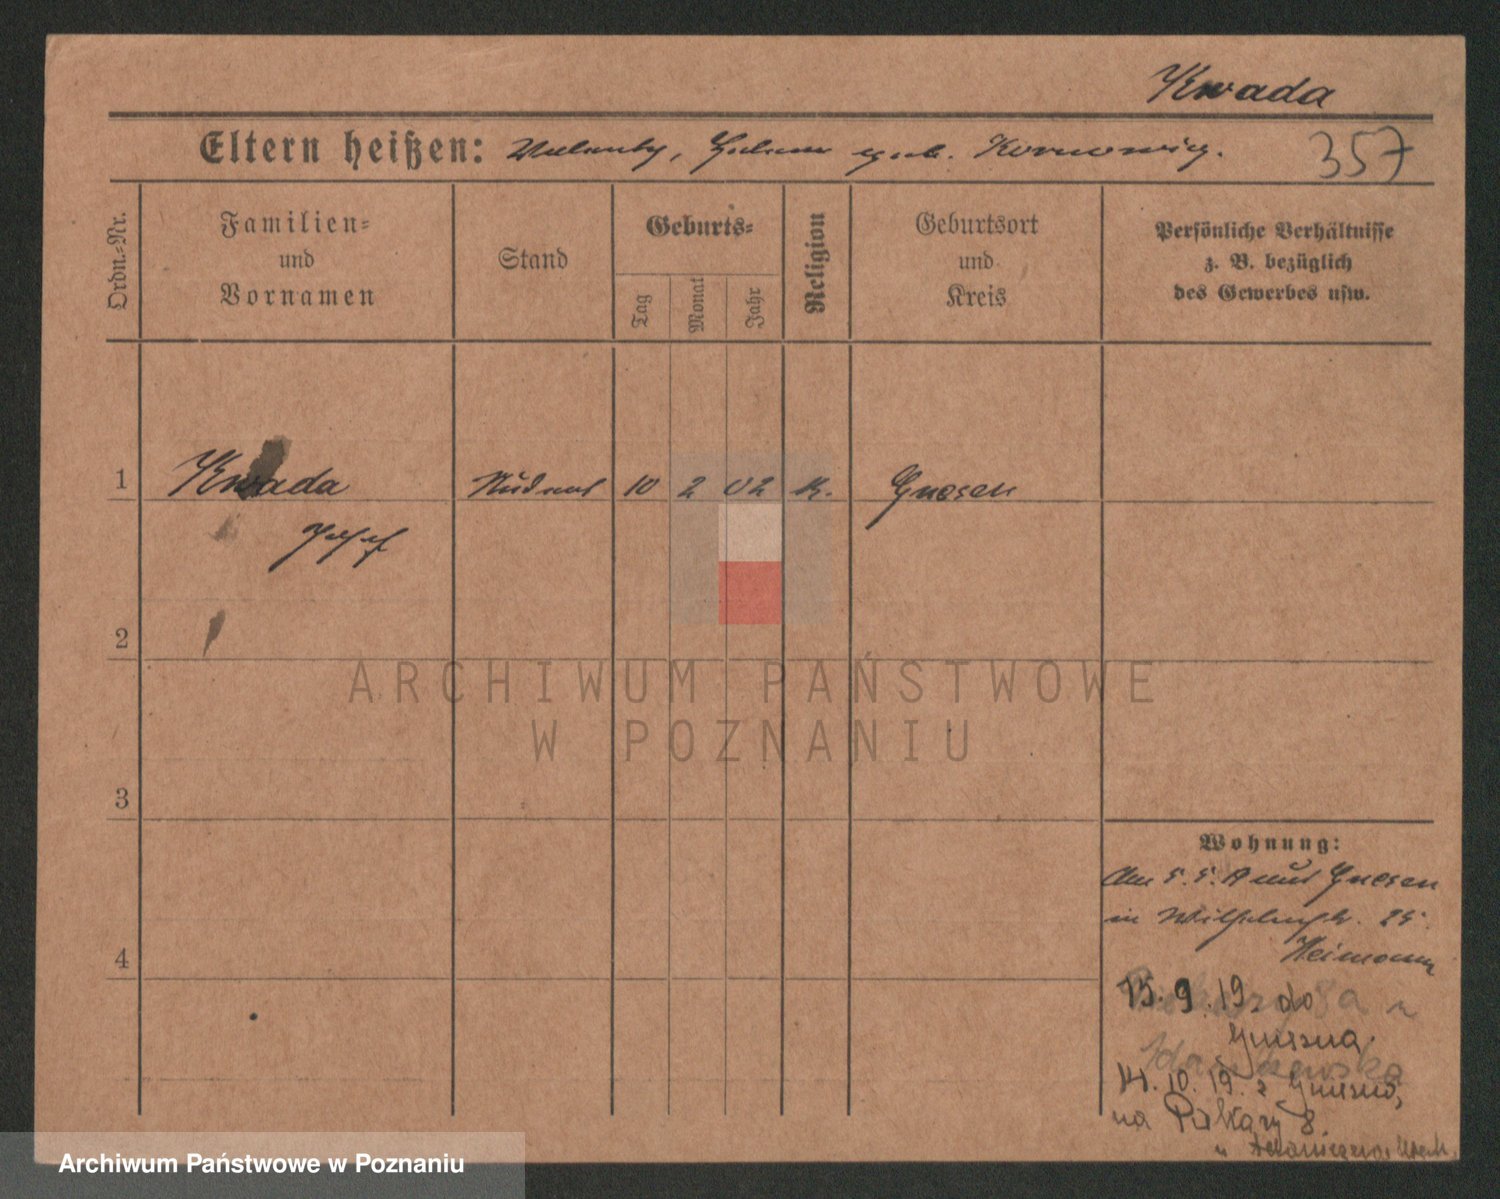 Kwada
Eltern heißen: geb.
357
Ordn.-Nr.
Familien-
und
Vornamen
Stand
Geburts-
Tag
Monat
Jahr
Religion
Geburtsort
und
Kreis
Persönliche Verhältnisse
z. B. bezüglich
des Gewerbes usw.
1 Kwada 10 2 02 K. Gnesen
Josef
2
3
4
ARCHIWUM PAŃSTWOWE
W POZNANIU
Wohnung:
Am 5.5.19 aus Gnesen
in Wilhelmstr. 25.
15.9.19. do
Gniezna.
14.10.19. z Gniezna,
na Piekary 8.
Archiwum Państwowe w Poznaniu